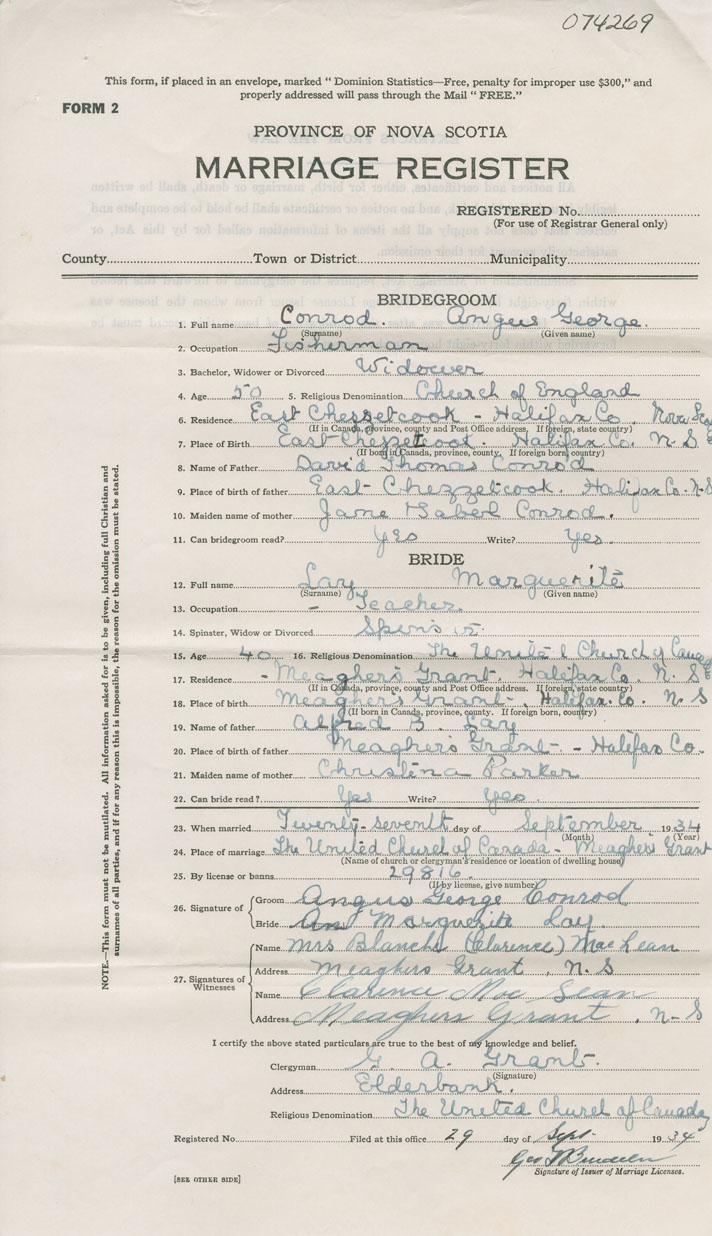 074269
This form, if placed in an envelope, marked " Dominion Statistics—Free, penalty for improper use $300," and
properly addressed will pass through the Mail " FREE."
FORM 2
PROVINCE OF NOVA SCOTIA
MARRIAGE REGISTER
REGISTERED No.
(For use of Registrar General only)
County Town or District Municipality
BRIDEGROOM
1. Full name Conrod. Angus George.
(Surname) (Given name)
2. Occupation Fisherman
3. Bachelor, Widower or Divorced Widower
4. Age 50 5. Religious Denomination Church of England
6. Residence East Chezzetcook - Halifax Co. Nova Sco
(If in Canada, province, county and Post Office address. If foreign, state country)
7. Place of Birth East Chezzetcook. Halifax Co. N S
(If born in Canada, province, county. If foreign born, country)
8. Name of Father David Thomas Conrod
9. Place of birth of father East Chezzetcook. Halifax Co. N S
10. Maiden name of mother Jane Isabel Conrod.
11. Can bridegroom read? Yes Write? Yes.
BRIDE
12. Full name Lay Marguerite
(Surname) (Given name)
13. Occupation - Teacher.
14. Spinster, Widow or Divorced
15. Age 40 16. Religious Denomination The United Church of Canada
17. Residence - Meagher's Grant. Halifax Co. N. S
(If in Canada, province, county and Post Office address. If foreign, state country)
18. Place of birth Meagher's Grant. Halifax. Co. N S
(If born in Canada, province, county. If foreign born, country)
19. Name of father Alfred B. Lay
20. Place of birth of father Meagher's Grant - Halifax Co.
21. Maiden name of mother Christena Parker
22. Can bride read? Yes Write? Yes.
23. When married Twenty-seventh day of September 1934
(Month) (Year)
24. Place of marriage The United Church of Canada - Meaghers Grant
(Name of church or clergyman's residence or location of dwelling house)
25. By license or banns 29816.
(If by license, give number)
26. Signature of Groom Angus George Conrod
Bride Marguerite Lay.
27. Signatures of Witnesses Name Mrs Blanche (Clarence) MacLean
Address Meaghers Grant, N. S
Name Clarence MacLean
Address Meaghers Grant, N-S
I certify the above stated particulars are true to the best of my knowledge and belief.
Clergyman G. A. Grant.
(Signature)
Address Elderbank.
Religious Denomination The United Church of Canada
Registered No. Filed at this office 29 day of Sept. 1934
Signature of Issuer of Marriage Licenses.
[SEE OTHER SIDE]
NOTE.—This form must not be mutilated. All information asked for is to be given, including full Christian and
surnames of all parties, and if for any reason this is impossible, the reason for the omission must be stated.